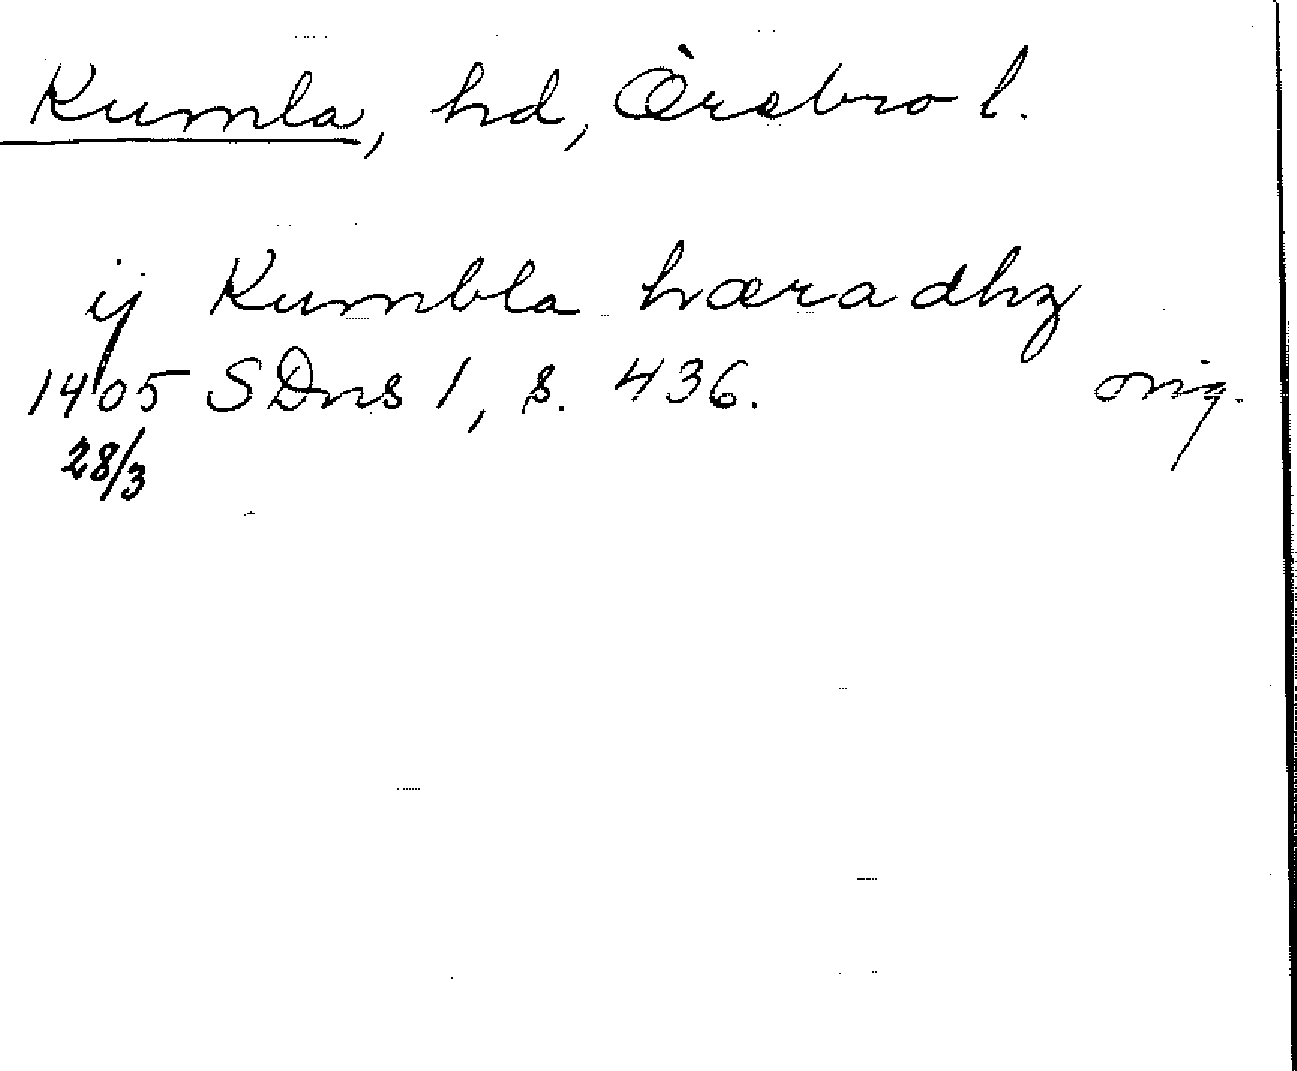 Kumla, hd, Örebro l.
ij Kumbla hæradhz
1405 SDns 1, s. 436. orig.
28/3